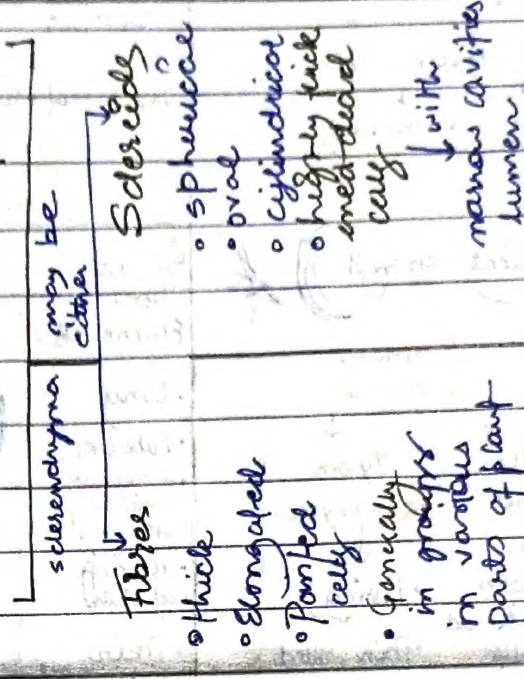 sclerenchyma may be
either
Fibres
• thick
• Elongated
• Pointed
cells
• Generally
in groups
in various
parts of plant
Sclereids
• spherical
• oval
• cylindrical
• highly thick
ened dead
cells
↓ with
narrow cavities
lumen